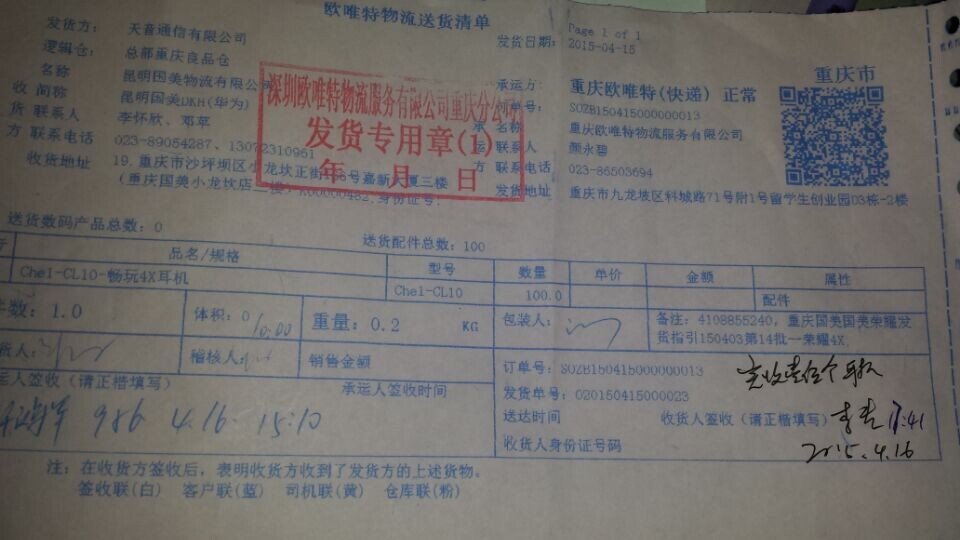 欧唯特物流送货清单
Page 1 of 1
发货方: 天音通信有限公司
发货日期: 2015-04-15
逻辑仓: 总部重庆良品仓
承运方: 重庆欧唯特(快递) 正常
重庆市
名称 昆明国美物流有限公司
单号: SOZB150415000000013
收 简称 昆明国美DKH(华为)
承 名称 重庆欧唯特物流服务有限公司
货 联系人 李怀欣、邓苹
运 联系人 颜永碧
方 联系电话 023-89054287、13072310961
方 联系电话 023-86503694
收货地址 19.重庆市沙坪坝区小龙坎正街 号嘉新大厦三楼
(重庆国美小龙坎店一楼) K00000482,身份证号:
发货地址 重庆市九龙坡区科城路71号附1号留学生创业园D3栋-2楼
深圳欧唯特物流服务有限公司重庆分公司
发货专用章(1)
年 月 日
送货数码产品总数: 0 送货配件总数: 100
行 品名/规格 型号 数量 单价 金额 属性
Che1-CL10-畅玩4X耳机 Che1-CL10 100.0 配件
件数: 1.0 体积: 0 重量: 0.2 KG 包装人:
备注: 4108855240, 重庆国美国美荣耀发
货指引150403第14批一荣耀4X.
货人: 稽核人: 销售金额
订单号: SOZB150415000000013
运人签收 (请正楷填写) 承运人签收时间
发货单号: 020150415000023
986 4.16 15:10
送达时间 收货人签收 (请正楷填写) 17:41
收货人身份证号码 2015.4.16
注: 在收货方签收后, 表明收货方收到了发货方的上述货物。
签收联(白) 客户联(蓝) 司机联(黄) 仓库联(粉)